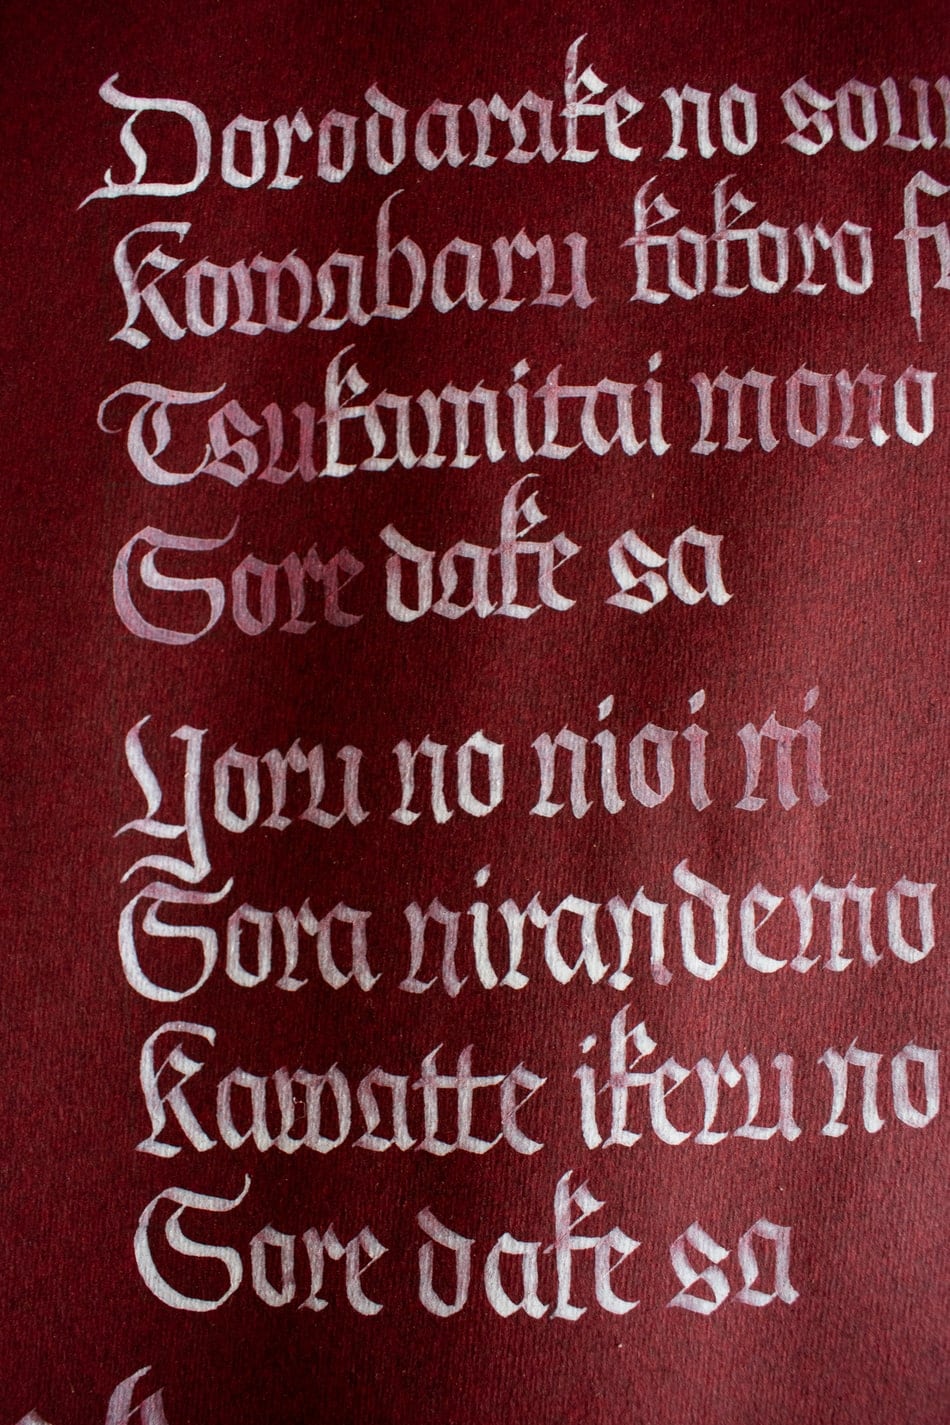 Dorodarake no sou
Kowabaru kokoro
Tsukamitai mono
Sore dake sa
Yoru no nioi ni
Sora nirandemo
Kawatte ikeru no
Sore dake sa